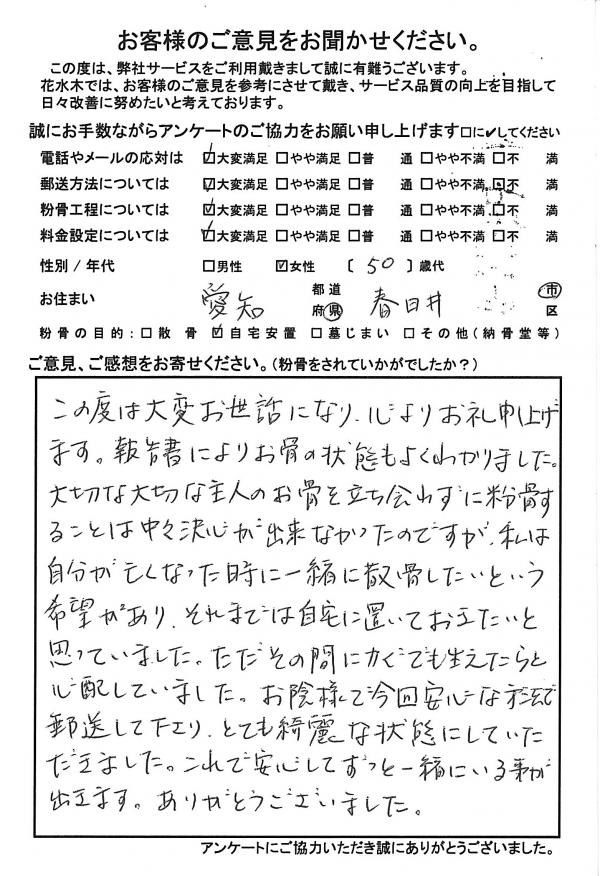 お客様のご意見をお聞かせください。
この度は、弊社サービスをご利用戴きまして誠に有難うございます。
花水木では、お客様のご意見を参考にさせて戴き、サービス品質の向上を目指して
日々改善に努めたいと考えております。
誠にお手数ながらアンケートのご協力をお願い申し上げます□に✔してください
電話やメールの応対は ☑大変満足 □やや満足 □普 通 □やや不満 □不 満
郵送方法については ☑大変満足 □やや満足 □普 通 □やや不満 □不 満
粉骨工程については ☑大変満足 □やや満足 □普 通 □やや不満 □不 満
料金設定については ☑大変満足 □やや満足 □普 通 □やや不満 □不 満
性別/年代 □男性 ☑女性 〔 50 〕歳代
お住まい 愛知 都道府県 春日井 市区
粉骨の目的:□散 骨 ☑自宅安置 □墓じまい □その他(納骨堂等)
ご意見、ご感想をお寄せください。(粉骨をされていかがでしたか?)
この度は大変お世話になり、心よりお礼申し上げ
ます。報告書によりお骨の状態もよくわかりました。
大切な大切な主人のお骨を立ち会わずに粉骨す
ることは中々決心が出来なかったのですが、私は
自分が亡くなった時に一緒に散骨したいという
希望があり、それまでは自宅に置いておきたいと
思っていました。ただその間にカビでも生えたらと
心配していました。お陰様で今回安心な方法で
郵送して下さり、とても綺麗な状態にしていた
だきました。これで安心してずっと一緒にいる事が
出来ます。ありがとうございました。
アンケートにご協力いただき誠にありがとうございました。